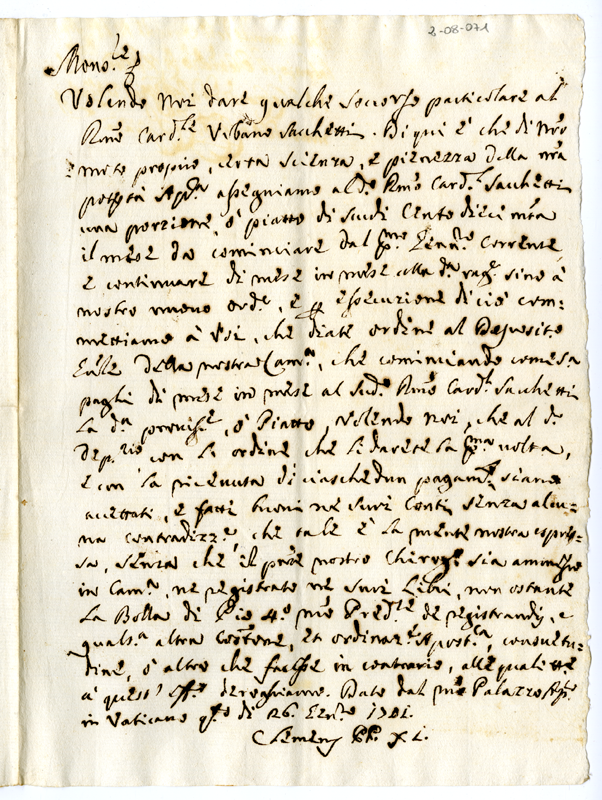 2-08-071
Mons.re
Volendo Noi dare qualche soccorso particolare al
Rmo Card.le Urbano Sacchetti. Di qui è che di nro
moto proprio, certa scienza, e pienezza della nra
potestà Ap.ca assegniamo al d.o Rmo Card.le Sacchetti
una porzione, ò piatto di scudi Cento dieci mta
il mese da cominciare dal p.mo Genn.o Corrente
e continuare di mese in mese alla d.a rag.e sino à
nostro nuovo ord.e, e p essecuzione di ciò com=
mettiamo à Voi, che diate ordine al Deposito
della nostra Cam.a, che cominciando come s.a
paghi di mese in mese al sud.o Rmo Card.le Sacchetti
la d.a provis.e, ò Piatto, volendo Noi, che al d.o
Dep.rio con lo ordine che li darete la p.ma volta,
e con la ricevuta di ciaschedun pagam.to siano
accettati, e fatti buoni ne suoi Conti senza alcu=
na contradizz.e, che tale è la mente nostra espres=
sa, senza che il pnte nostro Chirog.o sia ammesso
in Cam.a, ne registrato ne suoi Libri, non ostante
La Bolla di Pio 4.o nro Pred.re de registrandis, e
quals.a altra Costone, et ordinaz.e Apost.ca, consuetu=
dine, ò altro che facesse in contrario, alle quali tte
à quest' eff.o deroghiamo. Dato dal nro Palazzo Ap.co
in Vaticano q.to dì 26. Genn.o 1701.
Clemens PP. XI.